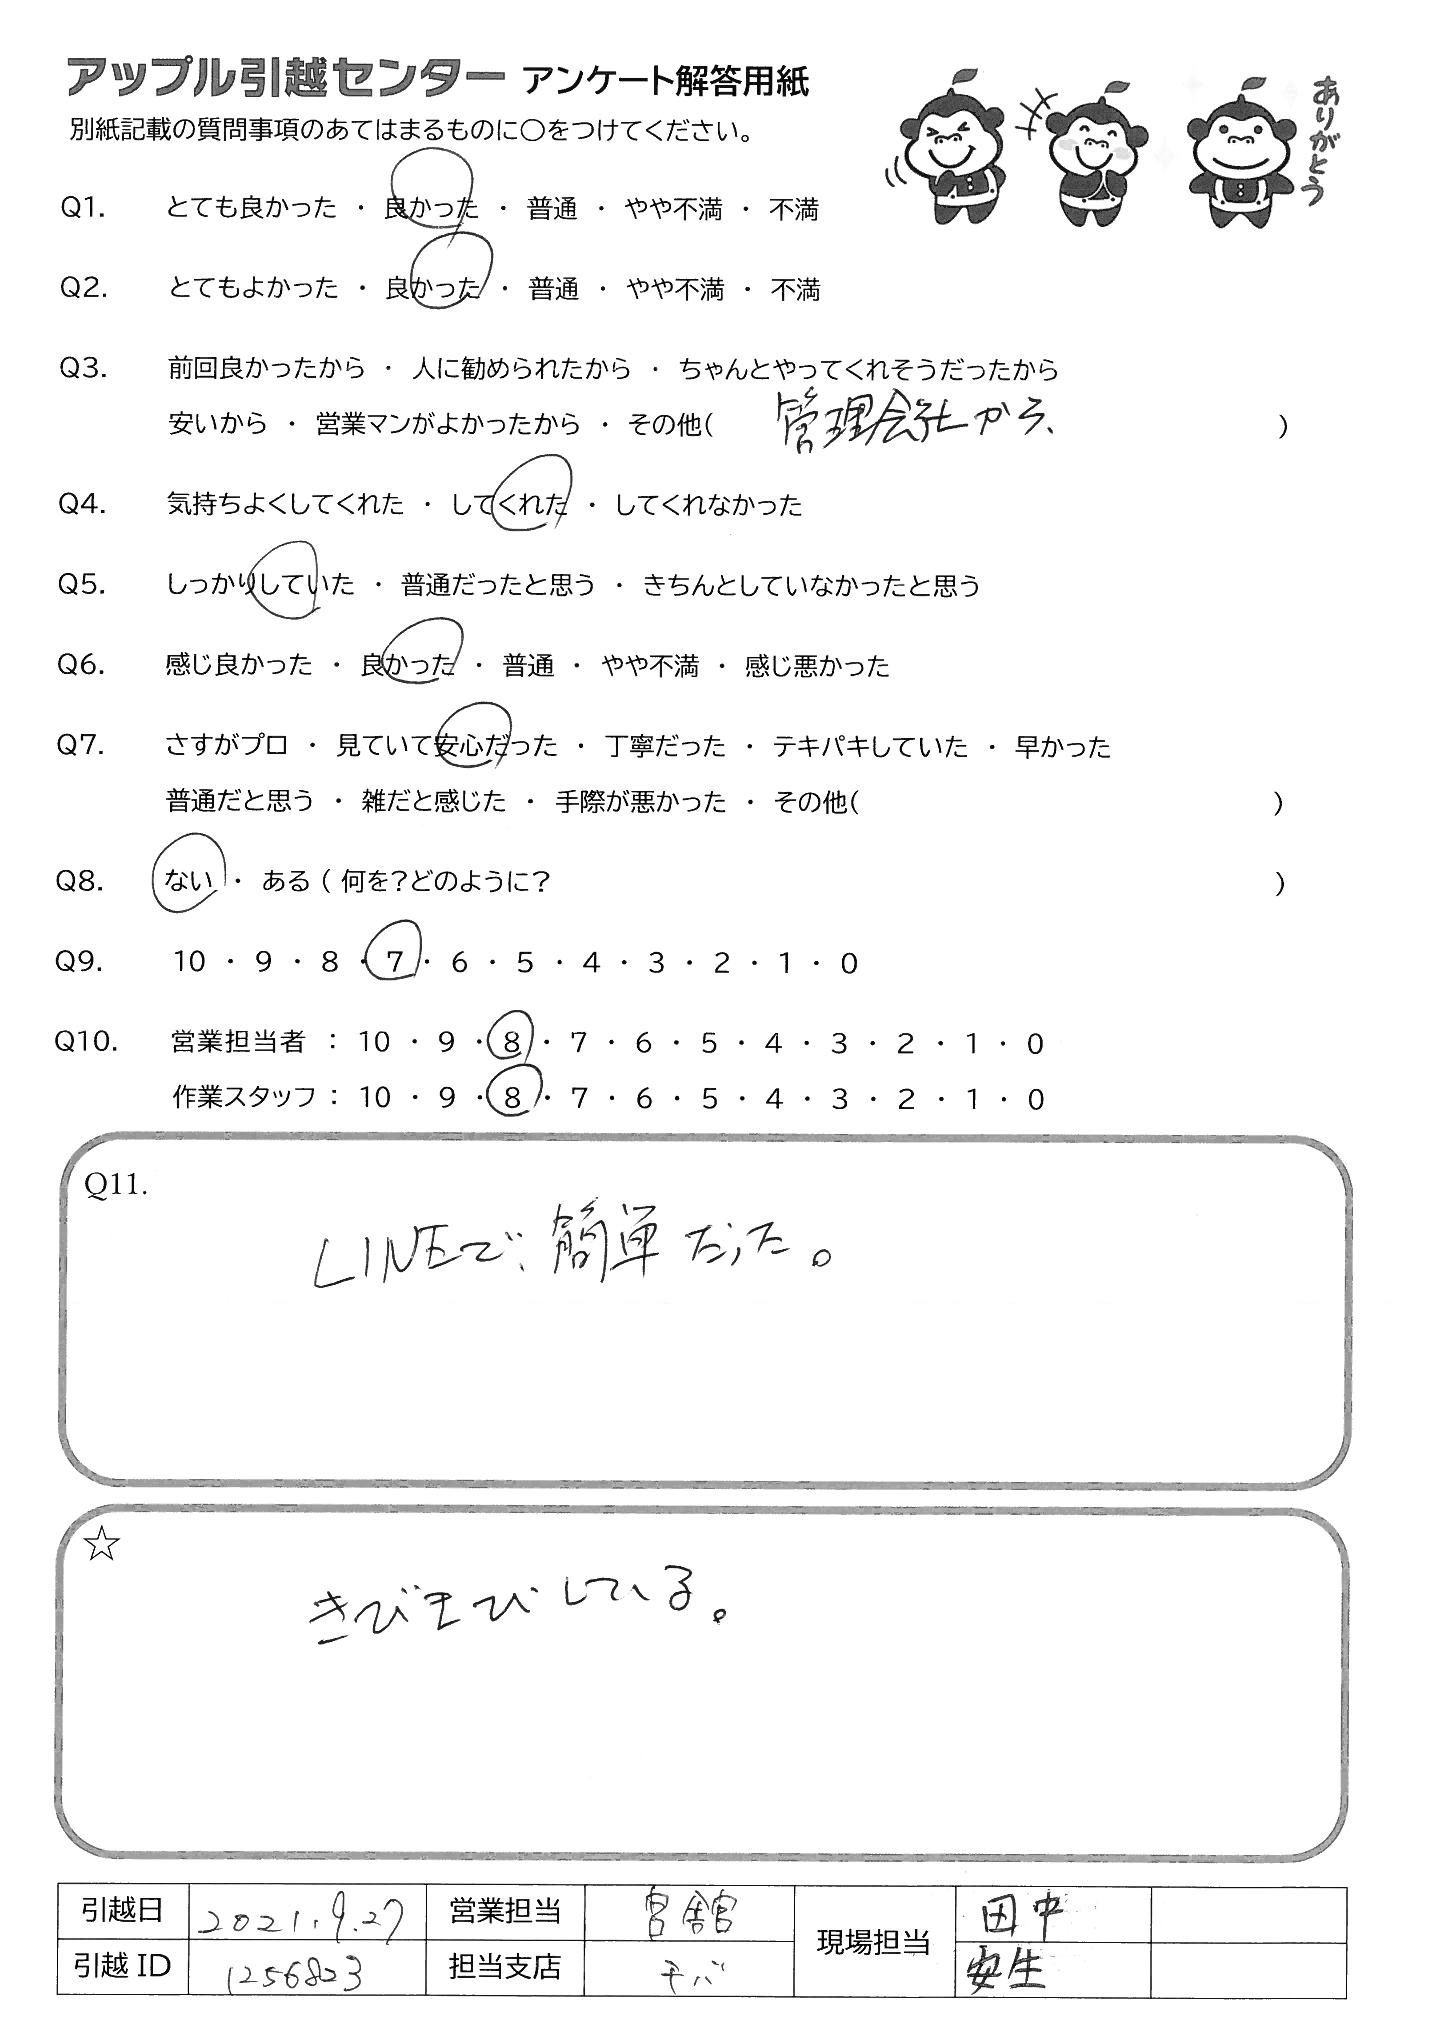 アップル引越センター アンケート解答用紙
別紙記載の質問事項のあてはまるものに○をつけてください。
ありがとう
Q1. とても良かった ・ 良かった ・ 普通 ・ やや不満 ・ 不満
Q2. とてもよかった ・ 良かった ・ 普通 ・ やや不満 ・ 不満
Q3. 前回良かったから ・ 人に勧められたから ・ ちゃんとやってくれそうだったから
安いから ・ 営業マンがよかったから ・ その他( 管理会社から、 )
Q4. 気持ちよくしてくれた ・ してくれた ・ してくれなかった
Q5. しっかりしていた ・ 普通だったと思う ・ きちんとしていなかったと思う
Q6. 感じ良かった ・ 良かった ・ 普通 ・ やや不満 ・ 感じ悪かった
Q7. さすがプロ ・ 見ていて安心だった ・ 丁寧だった ・ テキパキしていた ・ 早かった
普通だと思う ・ 雑だと感じた ・ 手際が悪かった ・ その他( )
Q8. ない ・ ある ( 何を?どのように? )
Q9. 10 ・ 9 ・ 8 ・ 7 ・ 6 ・ 5 ・ 4 ・ 3 ・ 2 ・ 1 ・ 0
Q10. 営業担当者 : 10 ・ 9 ・ 8 ・ 7 ・ 6 ・ 5 ・ 4 ・ 3 ・ 2 ・ 1 ・ 0
作業スタッフ : 10 ・ 9 ・ 8 ・ 7 ・ 6 ・ 5 ・ 4 ・ 3 ・ 2 ・ 1 ・ 0
Q11.
LINEで、簡単だった。
☆
きびきびしている。
引越日 2021.9.27 営業担当 宮舘 現場担当 田中
引越 ID 1256803 担当支店 チバ 安生